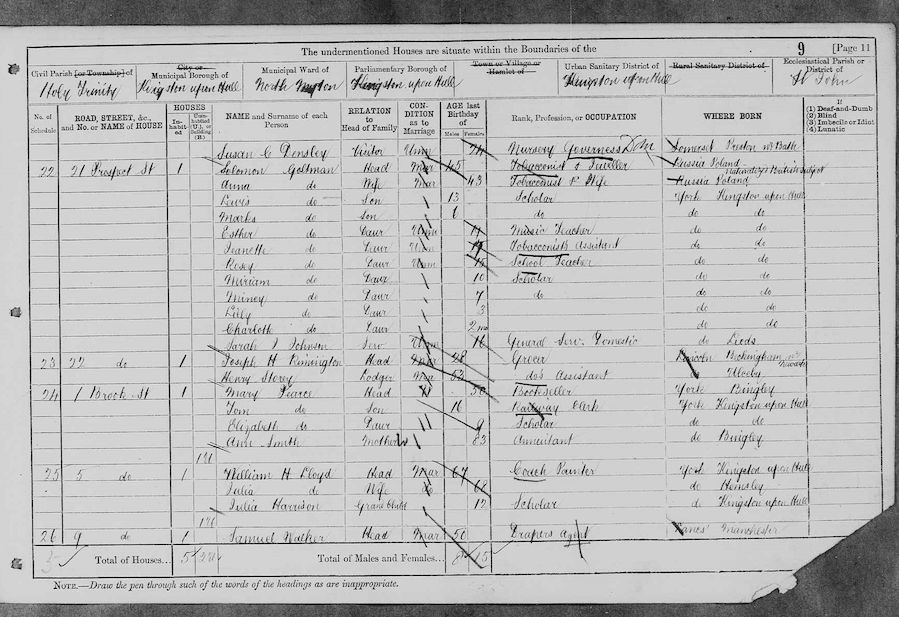 The undermentioned Houses are situate within the Boundaries of the 9 [Page 11
Civil Parish [or Township] of City or Municipal Borough of Municipal Ward of Parliamentary Borough of Town or Village or Hamlet of Urban Sanitary District of Rural Sanitary District of Ecclesiastical Parish or District of
Holy Trinity Kingston upon Hull North Kingston upon Hull Kingston upon Hull St John
No. of Schedule ROAD, STREET, &c., and No. or NAME of HOUSE HOUSES Inhabited Uninhabited (U.), or Building (B.) NAME and Surname of each Person RELATION to Head of Family CONDITION as to Marriage AGE last Birthday of Males Females Rank, Profession, or OCCUPATION WHERE BORN If (1) Deaf-and-Dumb (2) Blind (3) Imbecile or Idiot (4) Lunatic
Susan C Densley Visitor Unm 24 Nursery Governess Dom Somerset Preston nr Bath
22 21 Prospect St 1 Solomon Goltman Head Mar 45 Tobacconist & Jeweller Russia Poland
Naturalized British subject
Anna do Wife Mar 43 Tobacconist Wife Russia Poland
Lewis do Son 13 Scholar York Kingston upon Hull
Marks do Son 6 do do do
Esther do Daur Unm 19 Music Teacher do do
Jeanette do Daur Unm Tobacconists Assistant do do
Rosey do Daur Unm School Teacher do do
Miriam do Daur 10 Scholar do do
Miney do Daur 7 do do do
Lily do Daur 3 do do
Charlotte do Daur 2 mo do do
Sarah J Johnson Serv Unm 16 General Serv. Domestic do Leeds
23 22 do 1 Joseph H Rimington Head Mar 28 Grocer Lincoln Beckingham nr Newark
Henry Storey Lodger Mar 52 do Assistant do Ulceby
24 1 Brook St 1 Mary Pearce Head W 50 Bookseller York Bingley
Tom do Son 16 Railway Clerk York Kingston upon Hull
Elizabeth do Daur 9 Scholar do do
Ann Smith Mother W 83 Annuitant do Bingley
1U
25 5 do 1 William H Lloyd Head Mar 67 Coach Painter York Kingston upon Hull
Julia do Wife do 68 do Hemsley
Julia Harrison Grand Child 12 Scholar do Kingston upon Hull
1U
26 9 do 1 Samuel Walker Head Mar 50 Drapers agent Lancs Manchester
5 Total of Houses... 5 2U Total of Males and Females... 8 15
NOTE.—Draw the pen through such of the words of the headings as are inappropriate.